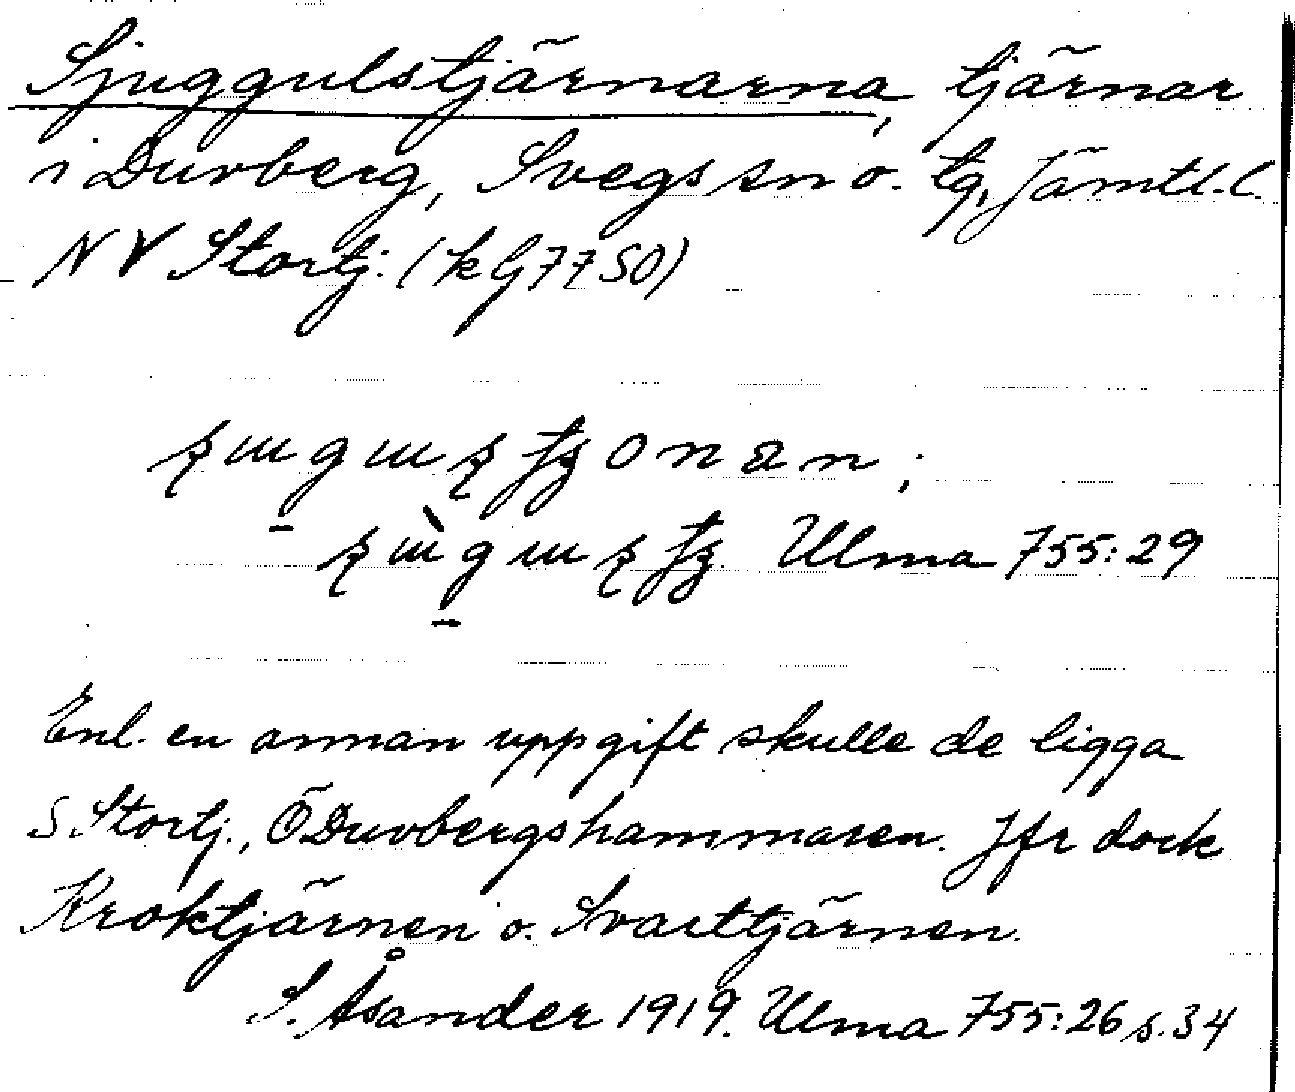 Sjuggulstjärnarna, tjärnar
i Duvberg, Svegs sn o. tg, Jämtl. l.
NV Stortj. (k G7750)
Ulma 755:29
Enl. en annan uppgift skulle de ligga
S Stortj., Ö Duvbergshammaren. Jfr dock
Kroktjärnen o. Svarttjärnen.
S. Åsander 1919. Ulma 755:26 s. 34